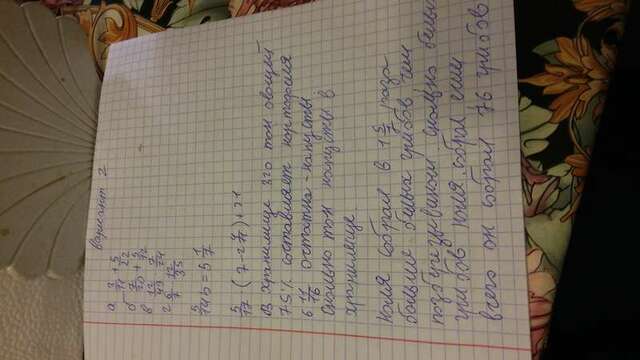 вариант 2
а 3/11 + 5/22
б 7/20 + 5/12
в 12/49 7/24
г 6/7 12/35
5/14 b = 5 1/7
5/17 (7 - 2
В хранилище 320 тон овощей
75% составляет картофеля
в 11/16 остатка - капусты
сколько тон капусты в
хранилище
Коля собрал в 1 раза
больше белых грибов, чем
сколько белых
грибов Коля собрал если
всего он собрал 76 грибов